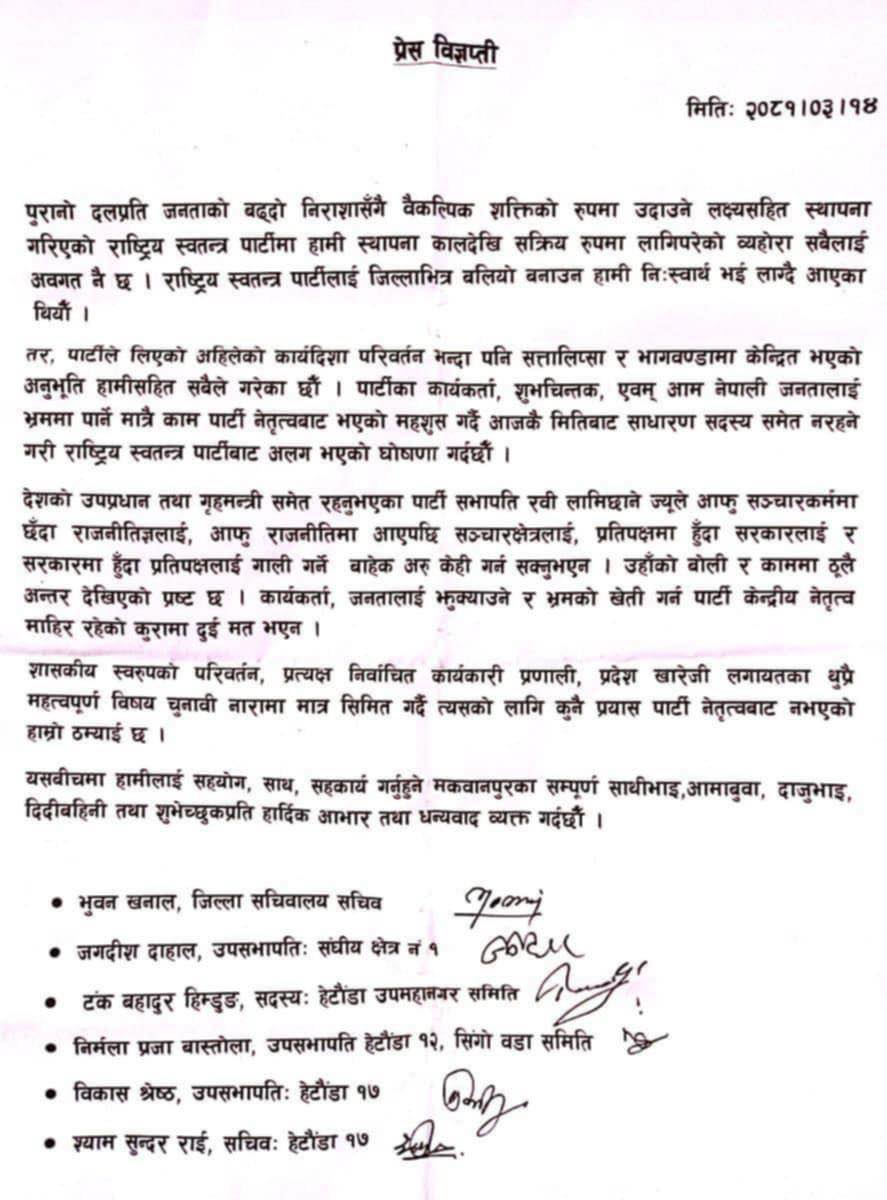 प्रेस विज्ञप्ती
मितिः २०८१।०३।१४
पुरानो दलप्रति जनताको बढ्दो निराशासँगै वैकल्पिक शक्तिको रुपमा उदाउने लक्ष्यसहित स्थापना
गरिएको राष्ट्रिय स्वतन्त्र पार्टीमा हामी स्थापना कालदेखि सक्रिय रुपमा लागिपरेको व्यहोरा सबैलाई
अवगत नै छ । राष्ट्रिय स्वतन्त्र पार्टीलाई जिल्लाभित्र बलियो बनाउन हामी निःस्वार्थ भई लाग्दै आएका
थियौं ।
तर, पार्टीले लिएको अहिलेको कार्यदिशा परिवर्तन भन्दा पनि सत्तालिप्सा र भागवण्डामा केन्द्रित भएको
अनुभूति हामीसहित सबैले गरेका छौं । पार्टीका कार्यकर्ता, शुभचिन्तक, एवम् आम नेपाली जनतालाई
भ्रममा पार्ने मात्रै काम पार्टी नेतृत्वबाट भएको महशुस गर्दै आजकै मितिबाट साधारण सदस्य समेत नरहने
गरी राष्ट्रिय स्वतन्त्र पार्टीबाट अलग भएको घोषणा गर्दछौं ।
देशको उपप्रधान तथा गृहमन्त्री समेत रहनुभएका पार्टी सभापति रवी लामिछाने ज्यूले आफु सञ्चारकर्ममा
छँदा राजनीतिज्ञलाई, आफु राजनीतिमा आएपछि सञ्चारक्षेत्रलाई, प्रतिपक्षमा हुँदा सरकारलाई र
सरकारमा हुँदा प्रतिपक्षलाई गाली गर्ने बाहेक अरु केही गर्न सक्नुभएन । उहाँको बोली र काममा ठूलै
अन्तर देखिएको प्रष्ट छ । कार्यकर्ता, जनतालाई झुक्याउने र भ्रमको खेती गर्न पार्टी केन्द्रीय नेतृत्व
माहिर रहेको कुरामा दुई मत भएन ।
शासकीय स्वरुपको परिवर्तन, प्रत्यक्ष निर्वाचित कार्यकारी प्रणाली, प्रदेश खारेजी लगायतका थुप्रै
महत्वपूर्ण विषय चुनावी नारामा मात्र सिमित गर्दै त्यसको लागि कुनै प्रयास पार्टी नेतृत्वबाट नभएको
हाम्रो ठम्याई छ ।
यसवीचमा हामीलाई सहयोग, साथ, सहकार्य गर्नुहुने मकवानपुरका सम्पूर्ण साथीभाइ,आमाबुवा, दाजुभाइ,
दिदीबहिनी तथा शुभेच्छुकप्रति हार्दिक आभार तथा धन्यवाद व्यक्त गर्दछौं ।
• भुवन खनाल, जिल्ला सचिवालय सचिव
• जगदीश दाहाल, उपसभापतिः संघीय क्षेत्र नं १
• टंक बहादुर हिम्डुङ, सदस्यः हेटौंडा उपमहानगर समिति
• निर्मला प्रजा बास्तोला, उपसभापति हेटौंडा १२, सिंगो वडा समिति
• विकास श्रेष्ठ, उपसभापतिः हेटौंडा १७
• श्याम सुन्दर राई, सचिवः हेटौंडा १७